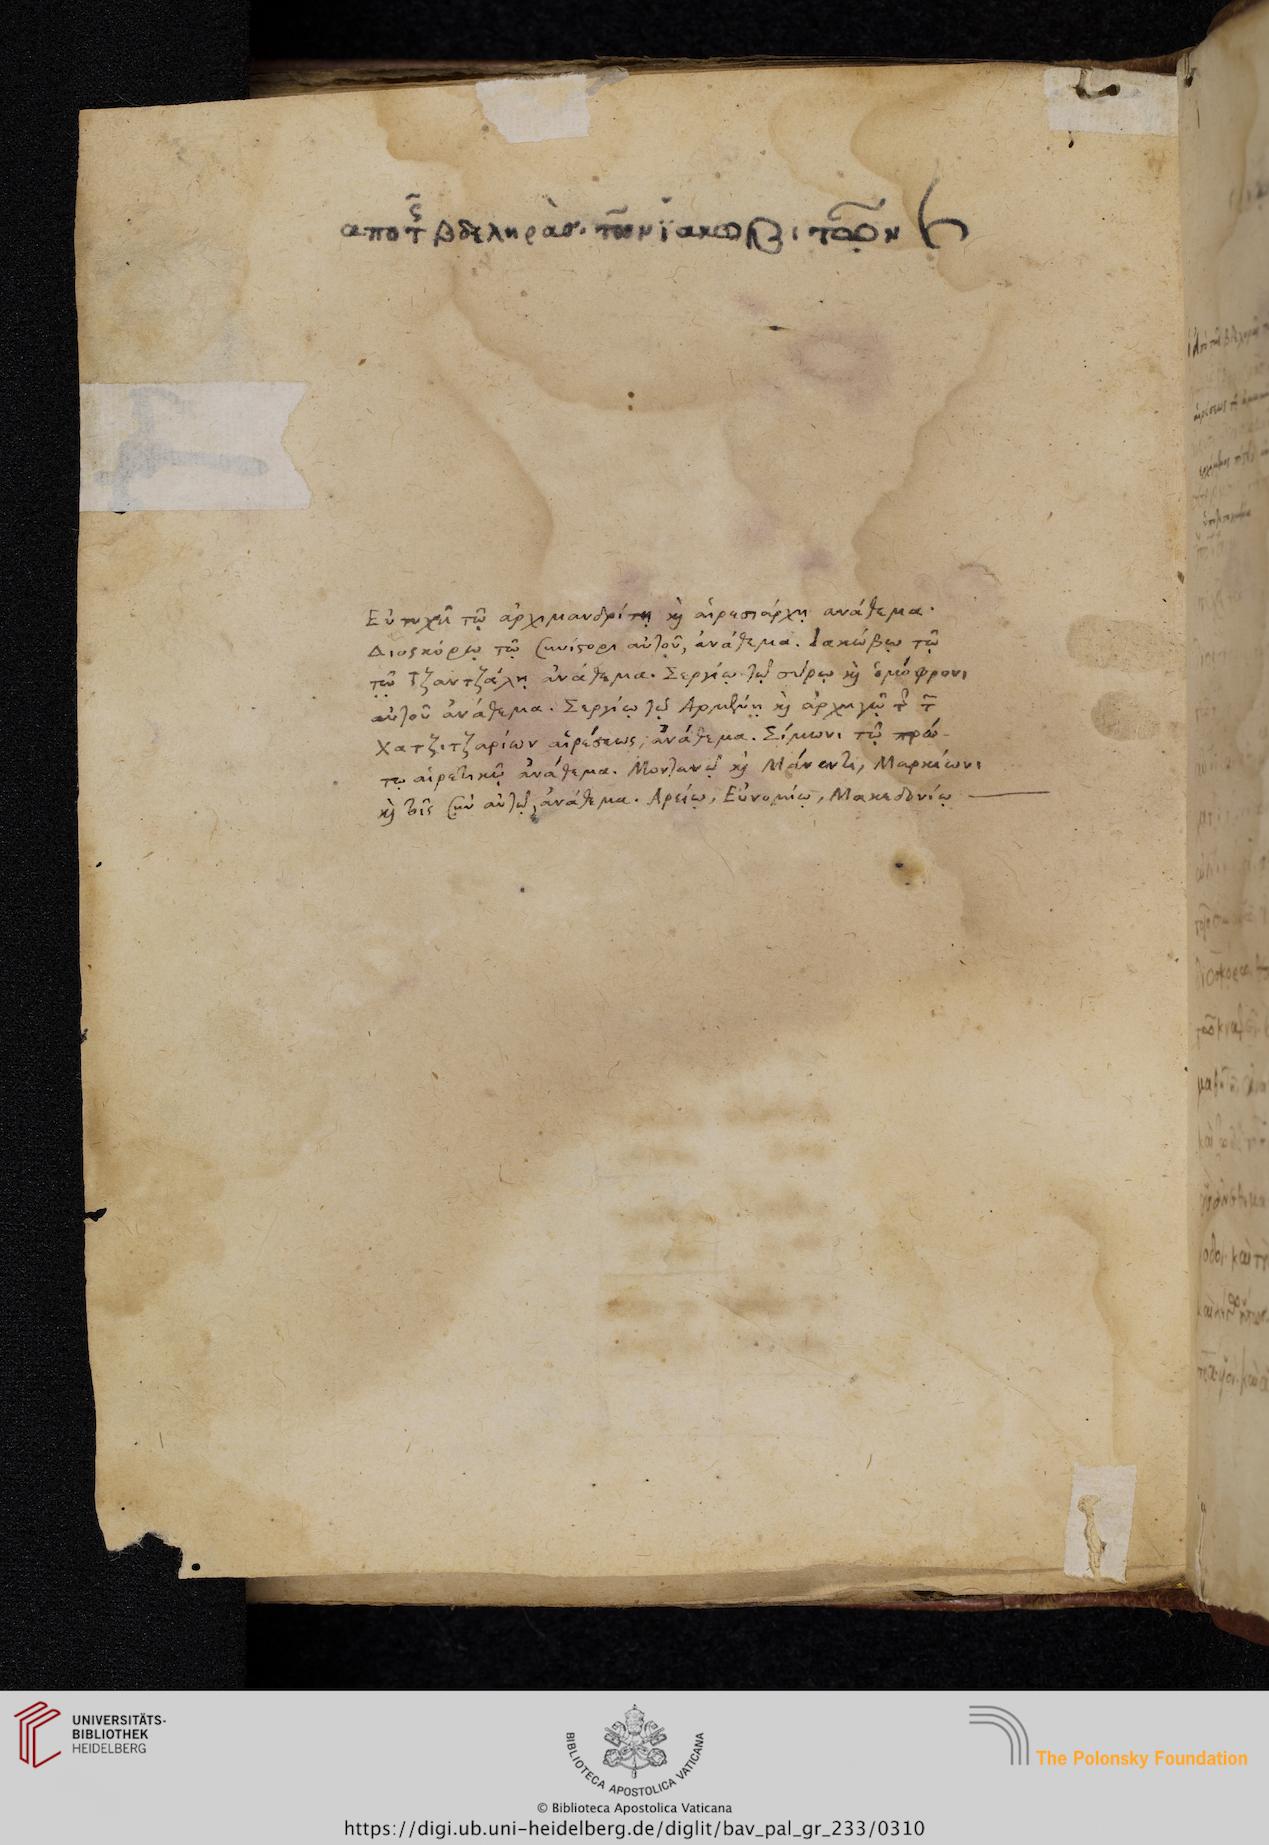 απο τῆς βδεληρὰσ· τῶν ϊακωβιτῶν
Εὐτυχῆ τῷ ἀρχιμανδρίτῃ κὶ αἱρεσιάρχῃ ανάθεμα·
Διοσκόρῳ τῷ αὐτοῦ, ἀνάθεμα. Ιακώβῳ τῷ
τῷ Τζαντζάλῃ ἀνάθεμα. Σεργίῳ τῷ σύρῳ κὶ ὁμόφρονι
αὐτοῦ ἀνάθεμα. Σεργίῳ τῷ Αρμενίῳ κὶ ἀρχηγῷ τ τ
Χατζιτζαρίων αἱρέσεως, ἀνάθεμα. Σίμωνι τῷ πρώ-
τῳ αἱρετικῷ ἀνάθεμα. Μοντανῷ κὶ Μάνεντι, Μαρκίωνι
κὶ τοῖς σὺν αὐτῷ, ἀνάθεμα. Αρείῳ, Εὐνομίῳ, Μακεδονίῳ
UNIVERSITÄTS-
BIBLIOTHEK
HEIDELBERG
BIBLIOTECA APOSTOLICA VATICANA
The Polonsky Foundation
© Biblioteca Apostolica Vaticana
https://digi.ub.uni-heidelberg.de/diglit/bav_pal_gr_233/0310